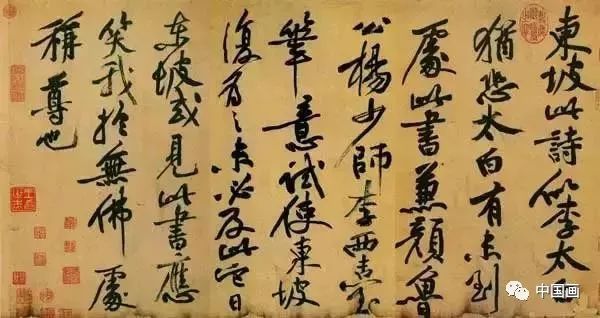 東坡此詩似李太白
猶恐太白有未到
處此書兼顔魯
公楊少師李西臺
筆意試使東坡
復為之未必及此它日
東坡或見此書應
笑我於無佛處
稱尊也
中国画